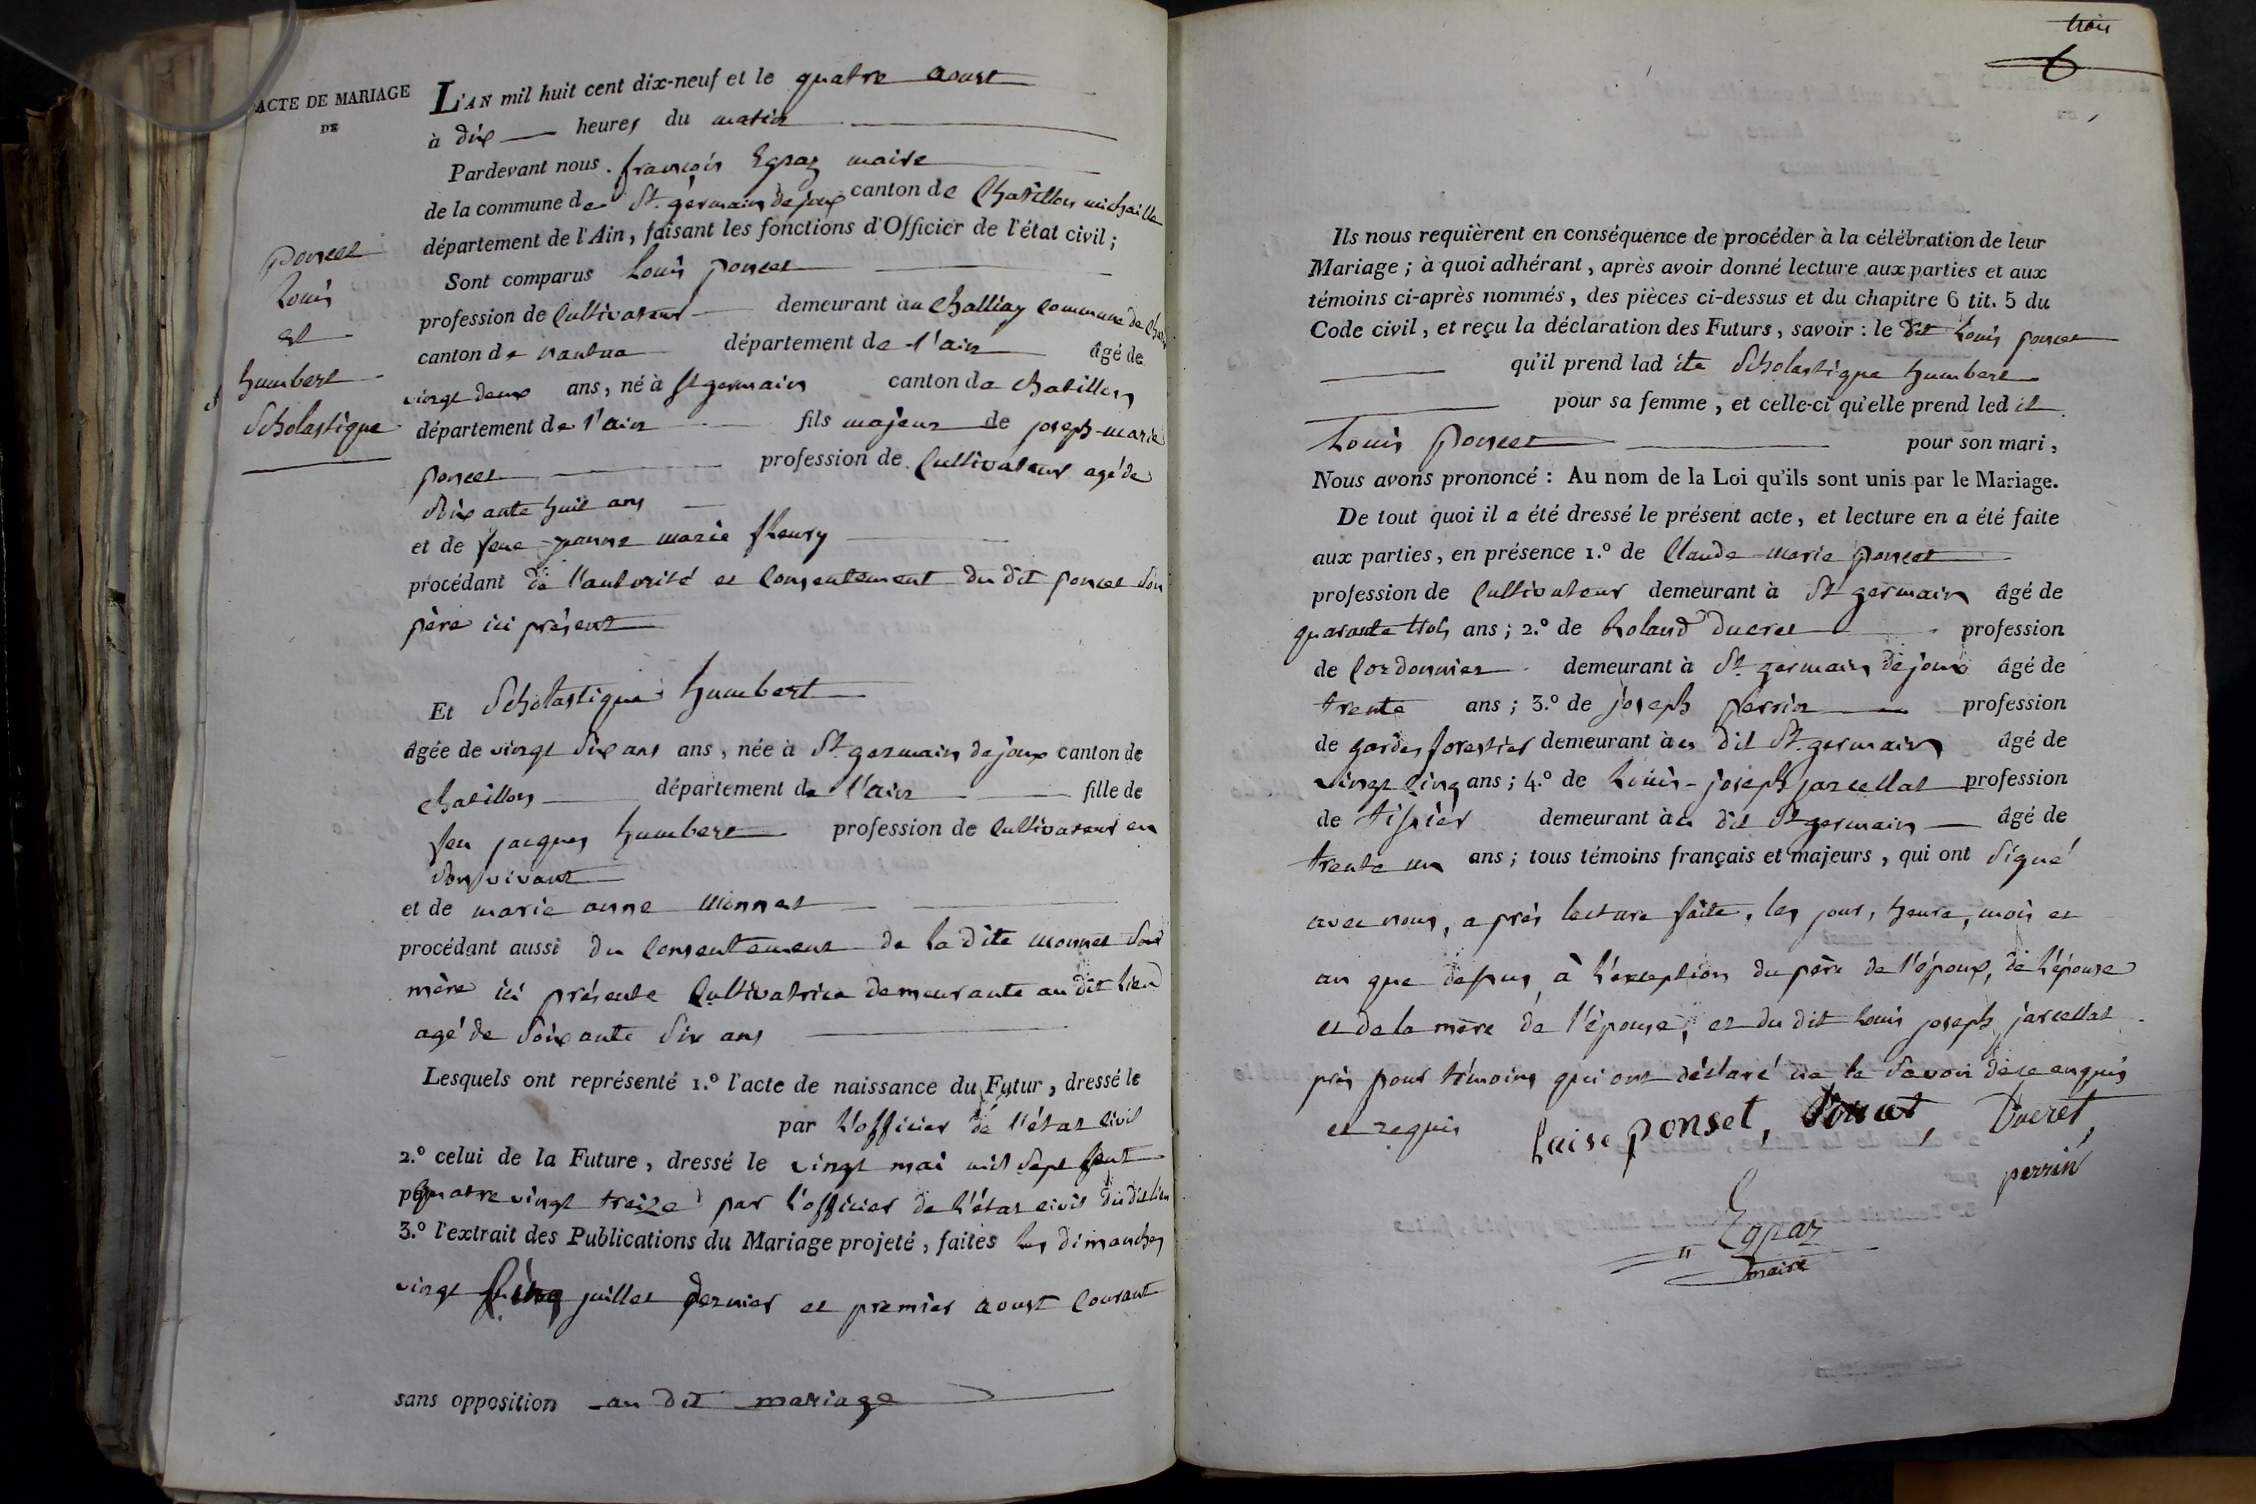 ACTE DE MARIAGE
DE
Poncet
Louis
et
humbert
Scholastique
L'AN mil huit cent dix-neuf et le quatre aoust
à dix heures du matin
Pardevant nous françois Egraz maire
de la commune de St. germain de joux canton de Chatillon michaille
département de l'Ain, faisant les fonctions d'Officier de l'état civil;
Sont comparus Louis poncet
profession de Cultivateur demeurant au Challiay Commune de
canton de nantua département de l'ain âgé de
vingt deux ans, né à St germain canton de chatillon
département de l'ain fils majeur de joseph-marie
poncet profession de Cultivateur agé de
Soix ante huit ans
et de feue jeanne marie fleury
procédant de l'autorité et Consentement du dit poncet son
père ici présent
Et Scholastique humbert
âgée de vingt Six ans ans, née à St. germain de joux canton de
chatillon département de l'ain fille de
feu jacques humbert profession de Cultivateur en
Son vivant
et de marie anne Monnet
procédant aussi du Consentement de la dite monnet Sad
mère ici présente Cultivatrice demeurante au dit lieu
agé de Soix ante Six ans
Lesquels ont représenté 1.º l'acte de naissance du Futur, dressé le
par L'officier de l'état civil
2.º celui de la Future, dressé le vingt mai mil Sept Cent
quatre vingt treize par l'officier de l'état civil du dit lieu
3.º l'extrait des Publications du Mariage projeté, faites les dimanches
vingt Cinq juillet dernier et premier aoust Courant
sans opposition au dit mariage
trois
6
Ils nous requièrent en conséquence de procéder à la célébration de leur
Mariage; à quoi adhérant, après avoir donné lecture aux parties et aux
témoins ci-après nommés, des pièces ci-dessus et du chapitre 6 tit. 5 du
Code civil, et reçu la déclaration des Futurs, savoir: le dit Louis poncet
qu'il prend lad ite Scholastique humbert
pour sa femme, et celle-ci qu'elle prend led it
Louis Poncet pour son mari,
Nous avons prononcé: Au nom de la Loi qu'ils sont unis par le Mariage.
De tout quoi il a été dressé le présent acte, et lecture en a été faite
aux parties, en présence 1.º de Claude marie poncet
profession de Cultivateur demeurant à St germain âgé de
quarante trois ans; 2.º de Roland Ducret profession
de Cordonnier demeurant à St. germain de joux âgé de
trente ans; 3.º de joseph perrin profession
de gardes forestier demeurant au dit St. germain âgé de
vingt Cinq ans; 4.º de Louis-joseph jarcellat profession
de tissier demeurant au dit St germain âgé de
trente un ans; tous témoins français et majeurs, qui ont Signé
avec nous, a près lecture faite, les jour, heure, mois et
an que dessus à l'exception du père de l'époux, de l'épouse
et de la mère de l'épouse, et du dit Louis joseph jarcellat
pris pour témoins qui ont déclaré ne le Savoir de ce enquis
et requis
Luise ponset, Ducret,
perrin
Egraz
maire